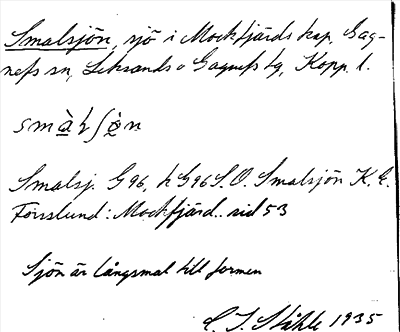 Smalsjön, sjö i Mockfjärds kap, Gag-
nefs sn, Leksands o Gagnefs tg, Kopp. l.
smàlʃön
Smalsj. G96, h G96 S.O. Smalsjön K. E.
Forsslund: Mockfjärd.. sid 53
Sjön är långsmal till formen
C. I. Ståhle 1935